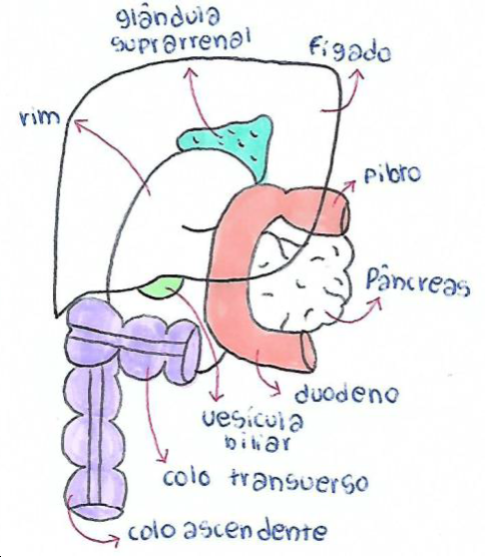 glândula
suprarrenal
fígado
rim
piloro
pâncreas
duodeno
vesícula
biliar
colo transverso
colo ascendente